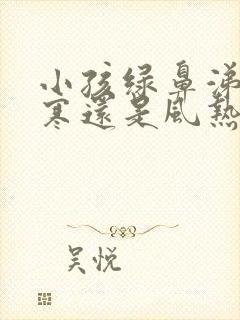 小孩绿鼻涕
寒還是風熱
吴悦